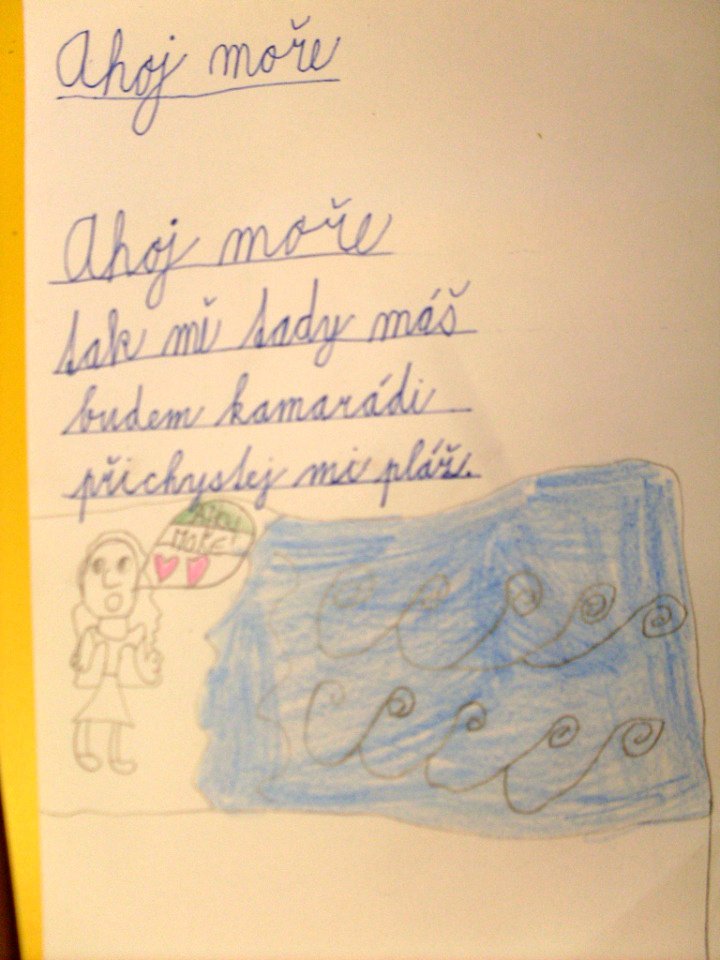 Ahoj moře
Ahoj moře
tak mě tady máš
budem kamarádi
přichystej mi pláž.
AHOJ
MOŘE!